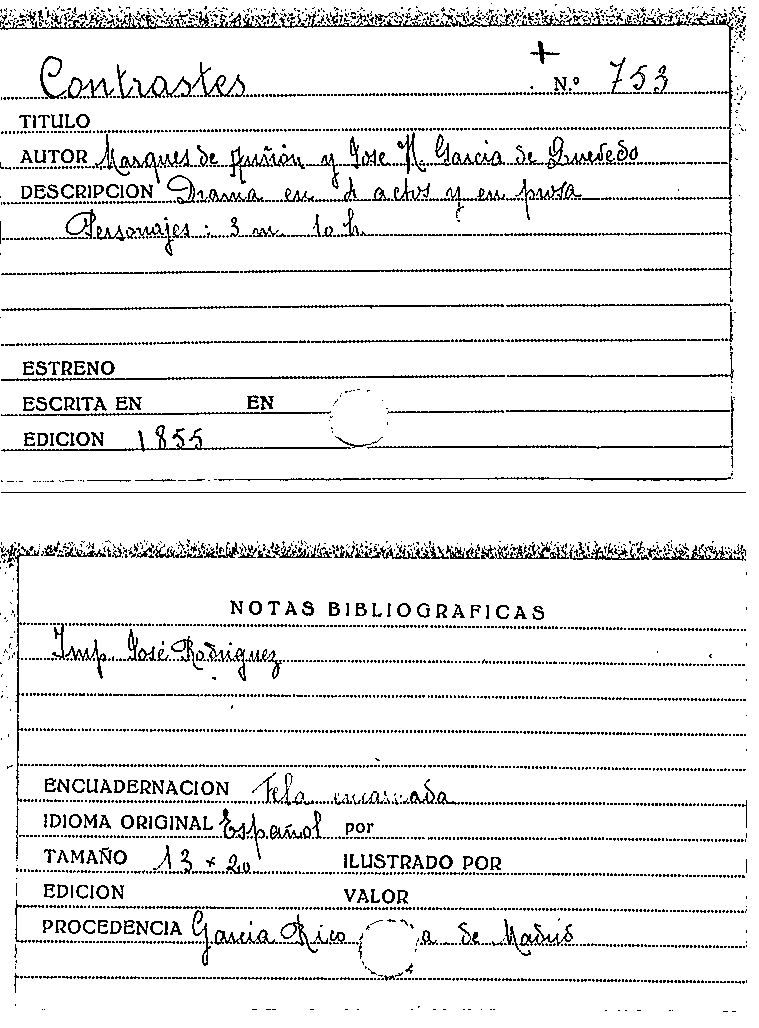 Contrastes
+
N.º 753
TITULO
AUTOR Marques de Auñón y Jose H. Garcia de Quevedo
DESCRIPCION Drama en 4 actos y en prosa
Personajes: 3 m. 10 h.
ESTRENO
ESCRITA EN EN
EDICION 1855
NOTAS BIBLIOGRAFICAS
Imp. José Rodriguez
ENCUADERNACION Tela encarnada
IDIOMA ORIGINAL Español por
TAMAÑO 13 x 20 ILUSTRADO POR
EDICION VALOR
PROCEDENCIA Garcia Rico a de Madrid